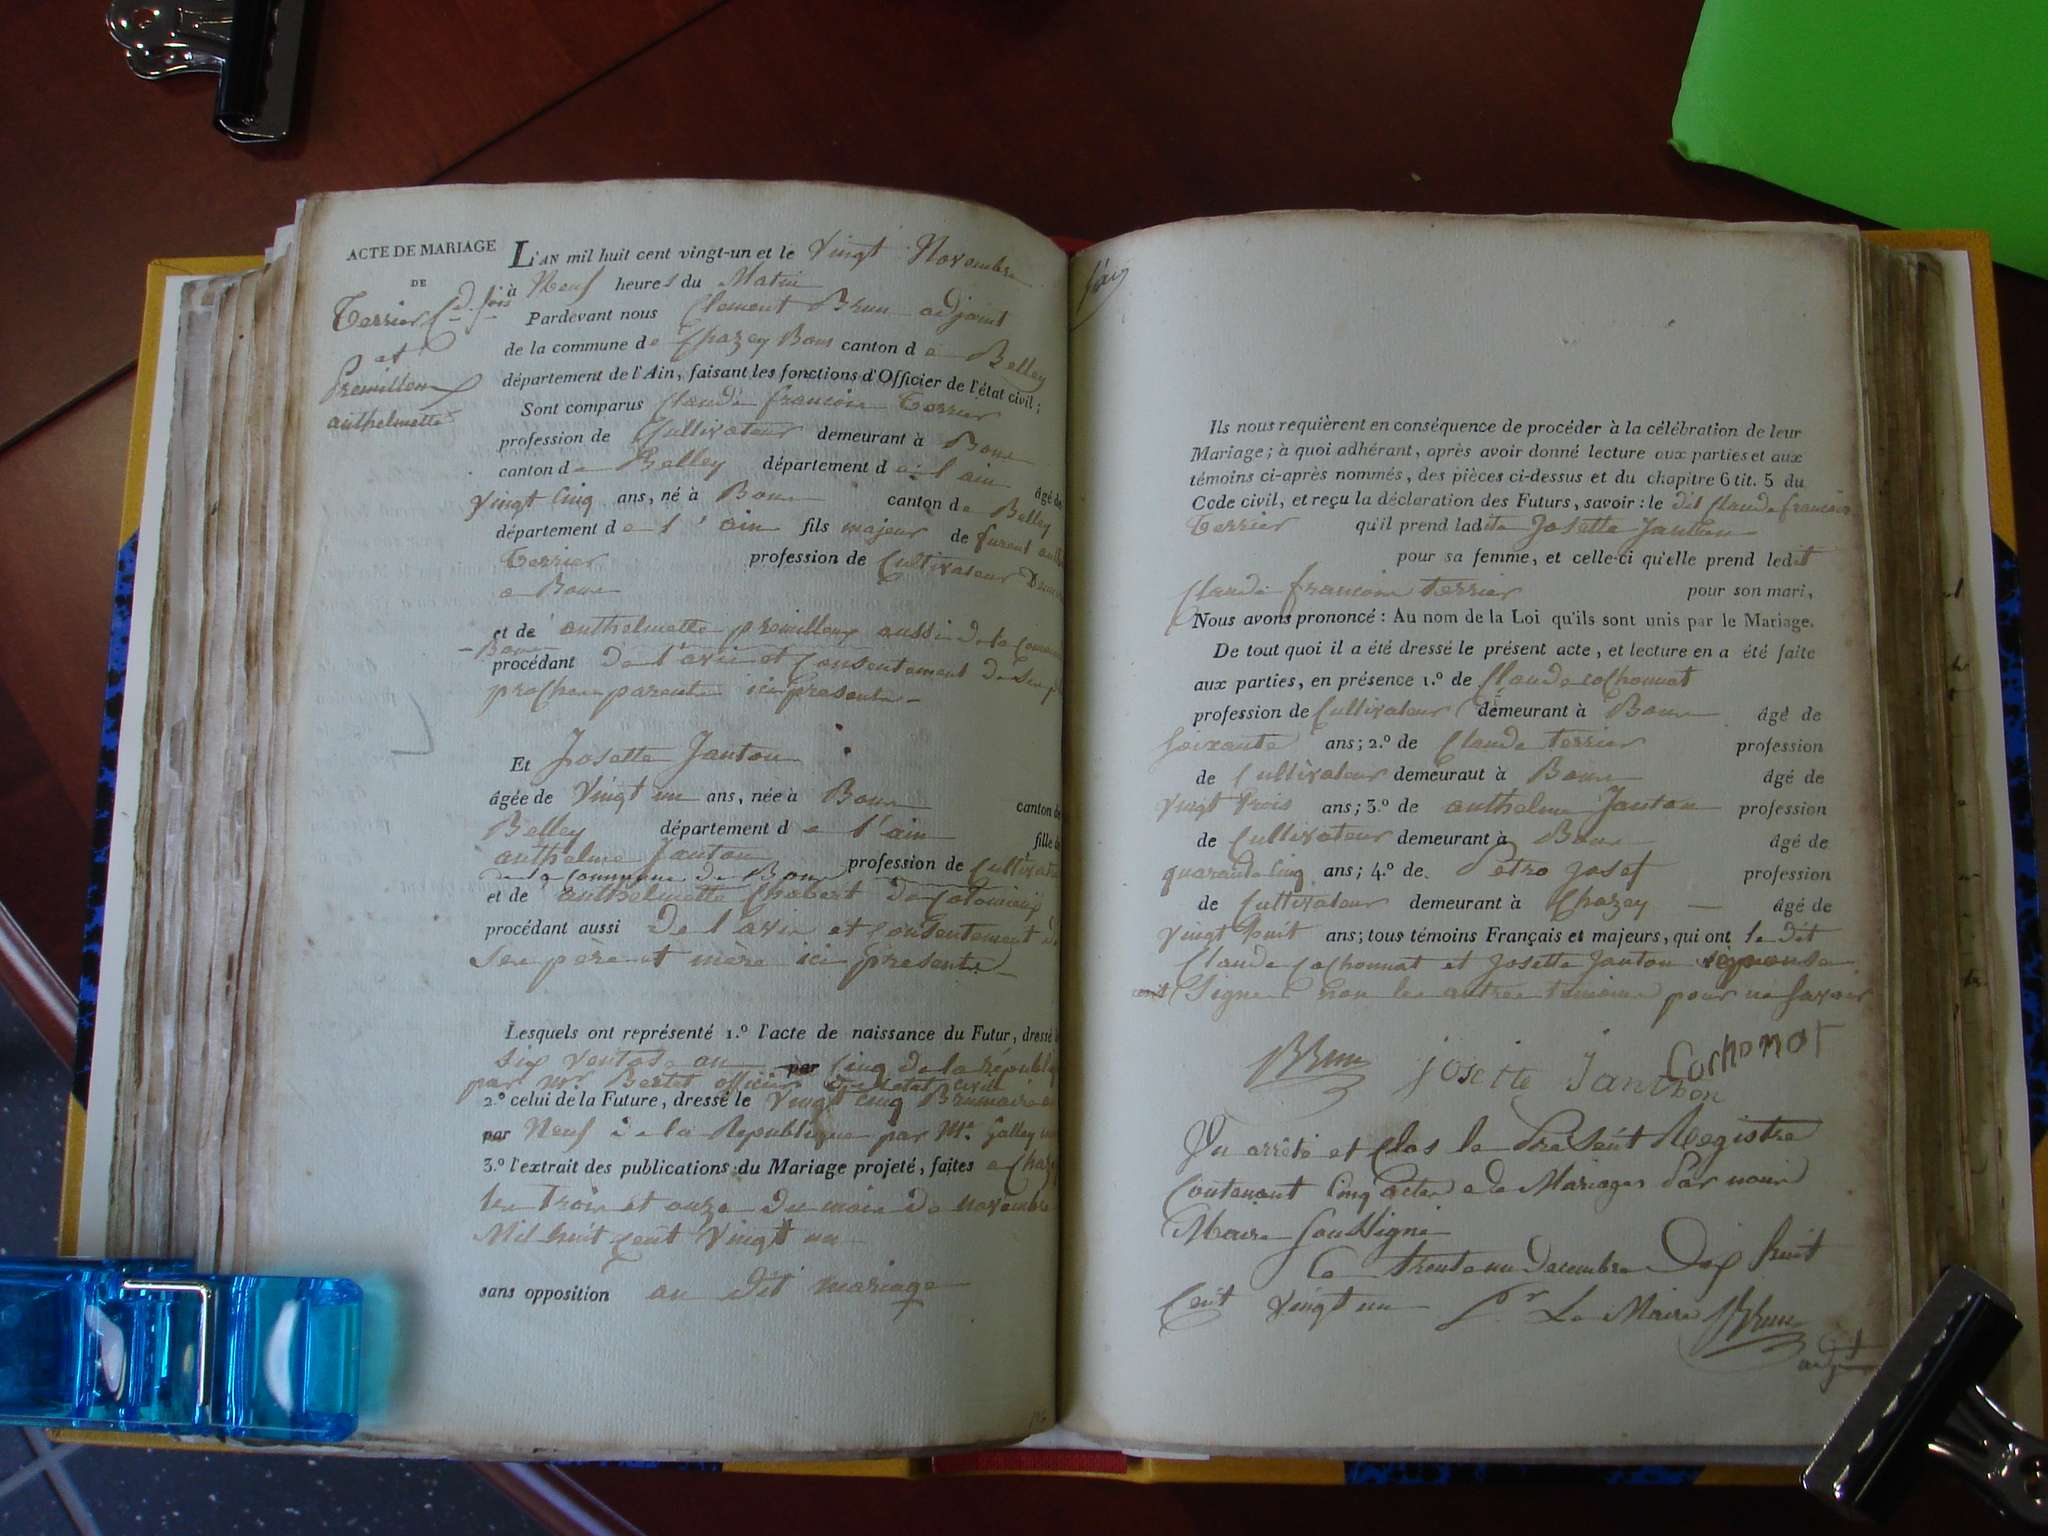 ACTE DE MARIAGE
DE
Terrier Cd. fois
et
Premillieux
anthelmette
L'AN mil huit cent vingt-un et le Vingt Novembre
à Neuf heures du Matin
Pardevant nous Clement Brun adjoint
de la commune de Chazey Bons canton de Belley
département de l'Ain, faisant les fonctions d'Officier de l'état civil;
Sont comparus Claude francois Terrier
profession de Cultivateur demeurant à Bons
canton de Belley département de l'ain âgé de
Vingt Cinq ans, né à Bons canton de Belley
département de l'ain fils majeur de furent
Terrier profession de Cultivateur
a Bons
et de anthelmette premilleux aussi de la
Bons
procédant de l'avis et Consentement de Ses
prochens parents ici presents
Et Josette Janton
âgée de Vingt un ans, née à Bons canton de
Belley département de l'ain fille de
anthelme Janton profession de
de la commune de Bons
et de anthelmette Chabert de Colomieux
procédant aussi De l'avis et Consentement de
Ses père et mère ici presents
Lesquels ont représenté 1.º l'acte de naissance du Futur, dressé
Six ventose an par Cinq de la républi
par mr. Bertet officier de l'etat civil
2.º celui de la Future, dressé le Vingt cinq Brumaire an
par Neuf de la Republique par Mr. Galley
3.º l'extrait des publications du Mariage projeté, faites a Chaz
les trois et onze du mois de novembre
Mil huit Cent Vingt un
sans opposition au dit mariage
Ils nous requièrent en conséquence de procéder à la célébration de leur
Mariage; à quoi adhérant, oprès avoir donné lecture aux parties et aux
témoins ci-après nommés, des pièces ci-dessus et du chapitre 6 tit. 5 du
Code civil, et reçu la déclaration des Futurs, savoir: le dit Claude francois
Terrier qu'il prend ladite Josette Janton
pour sa femme, et celle-ci qu'elle prend ledit
Claude francois terrier pour son mari,
Nous avons prononcé: Au nom de la Loi qu'ils sont unis par le Mariage.
De tout quoi il a été dressé le présent acte, et lecture en a été faite
aux parties, en présence 1.º de Claude cochonnat
profession de Cultivateur demeurant à Bons âgé de
Soixante ans; 2.º de Claude terrier profession
de Cultivateur demeuraut à Bons âgé de
Vingt trois ans; 3.º de anthelme Janton profession
de Cultivateur demeurant à Bons âgé de
quarante Cinq ans; 4.º de Petro Josef profession
de Cultivateur demeurant à Chazey âgé de
Vingt huit ans; tous témoins Français et majeurs, qui ont le dit
Claude cochonnat et Josette Janton
Signé non les autres temoins pour ne Savoir
BBrun Josette Janthon Cochonat
Vu arrêté et Clos le Present Registre
Contenant Cinq actes de Mariages Par nous
Maire Soussigné
Ce trente un decembre Dix huit
Cent Vingt un Pr. Le Maire BBrun
adjt